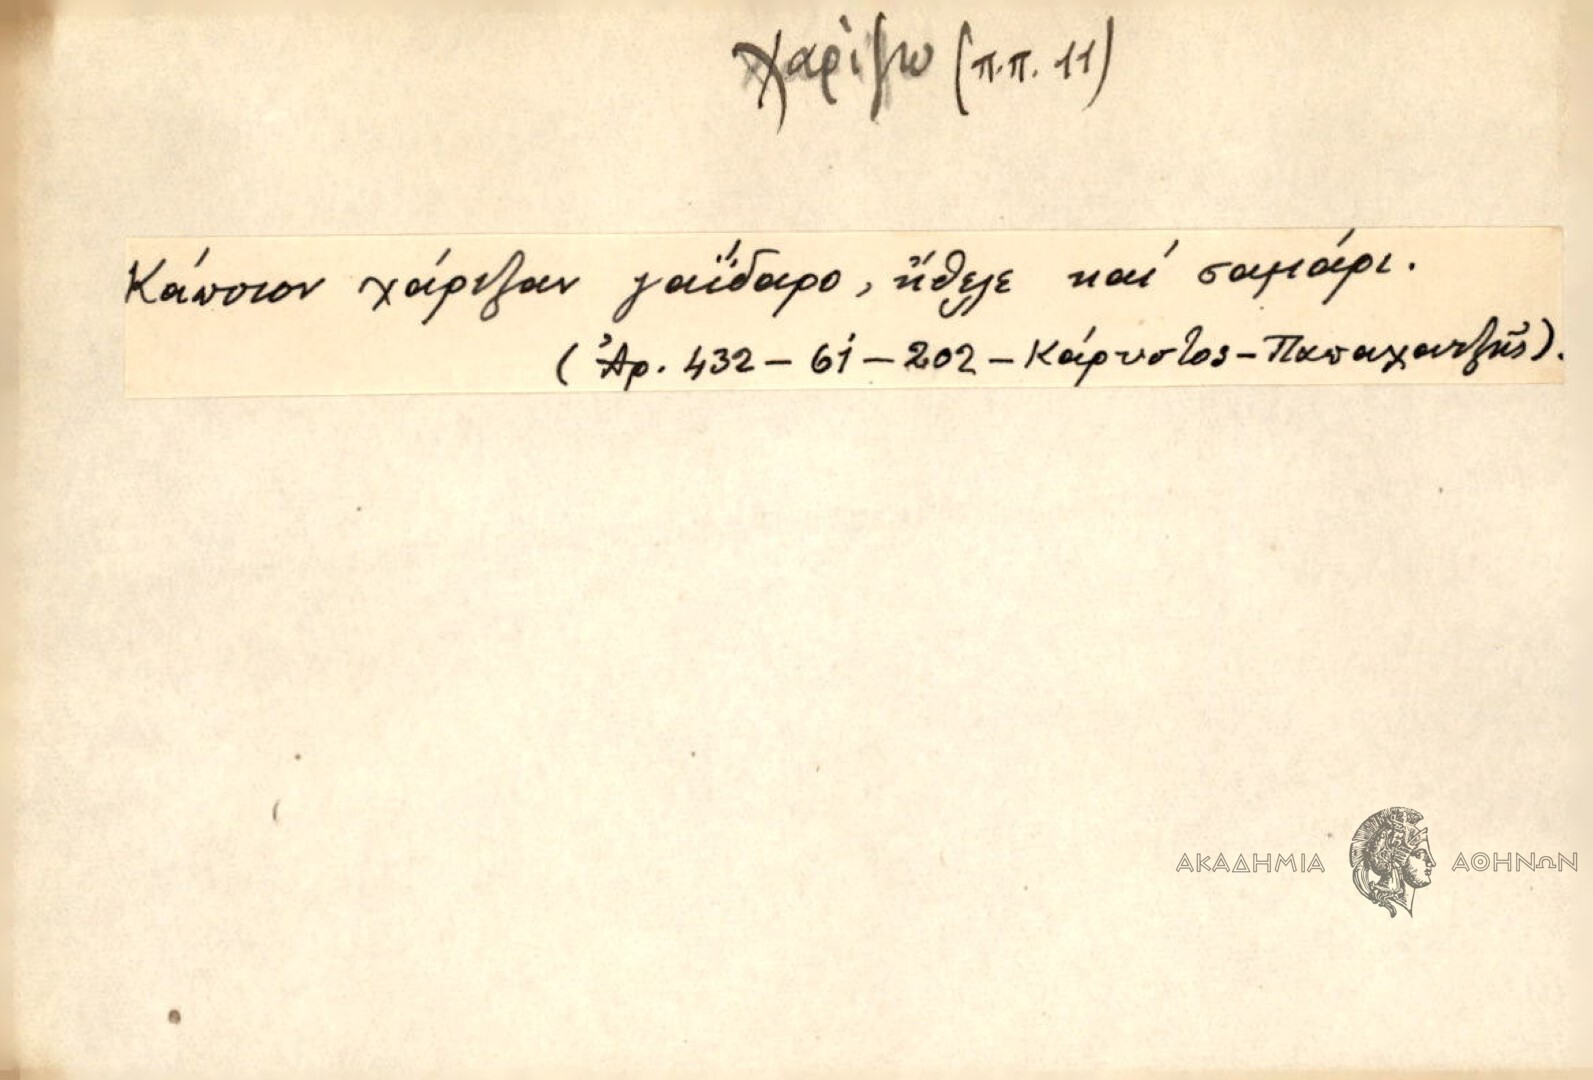 χαρίζω (π.π. 11)
Κάποιον χάριζαν γαΐδαρο, ἤθελε καί σαμάρι.
(Ἀρ. 432 – 61 – 202 – Κάρυστος – Παπαχατζῆς).
ΑΚΑΔΗΜΙΑ ΑΘΗΝΩΝ